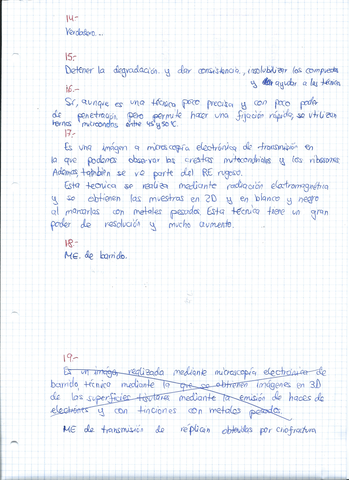 14-
Verdadero...
15-
Detener la degradación y dar consistencia, insolubilizar los compuestos
y ayudar a las
16-
Sí, aunque es una técnica poco precisa y con poco poder
de penetración pero permite hacer una fijación rápida, se utilizan
hornos microondas entre 45 y 50ºC.
17-
Es una imagen a microscopía electrónica de transmisión en
la que podemos observar las crestas mitocondriales y los ribosomas
Además, también se ve parte del RE rugoso.
Esta técnica se realiza mediante radiación electromagnética
y se obtienen las muestras en 2D y en blanco y negro
al marcarlas con metales pesados. Esta técnica tiene un gran
poder de resolución y mucho aumento.
18-
ME. de barrido.
19-
Es un imagen realizada mediante microscopía electrónica de
barrido, técnica mediante la que se obtienen imágenes en 3D
de las superficies tisulares mediante la emisión de haces de
electrones y con tinciones con metales pesados
ME de transmisión de réplicas obtenidas por criofractura